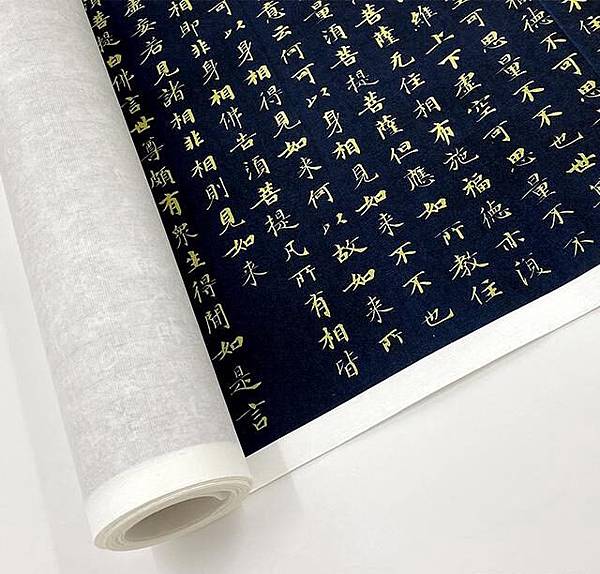 不住
德不可思
可思量不不也世
維上下虛空可思量不不
菩薩无住相有施福德亦復
量須菩提菩薩但應如所教住
意云何可以身相見如来不不也
可以身相得見如来何以故如来所
相即非身相佛告須菩提凡所有相皆
虛妄若見諸相非相則見如来
菩提白佛言世尊頗有衆生得聞如是言